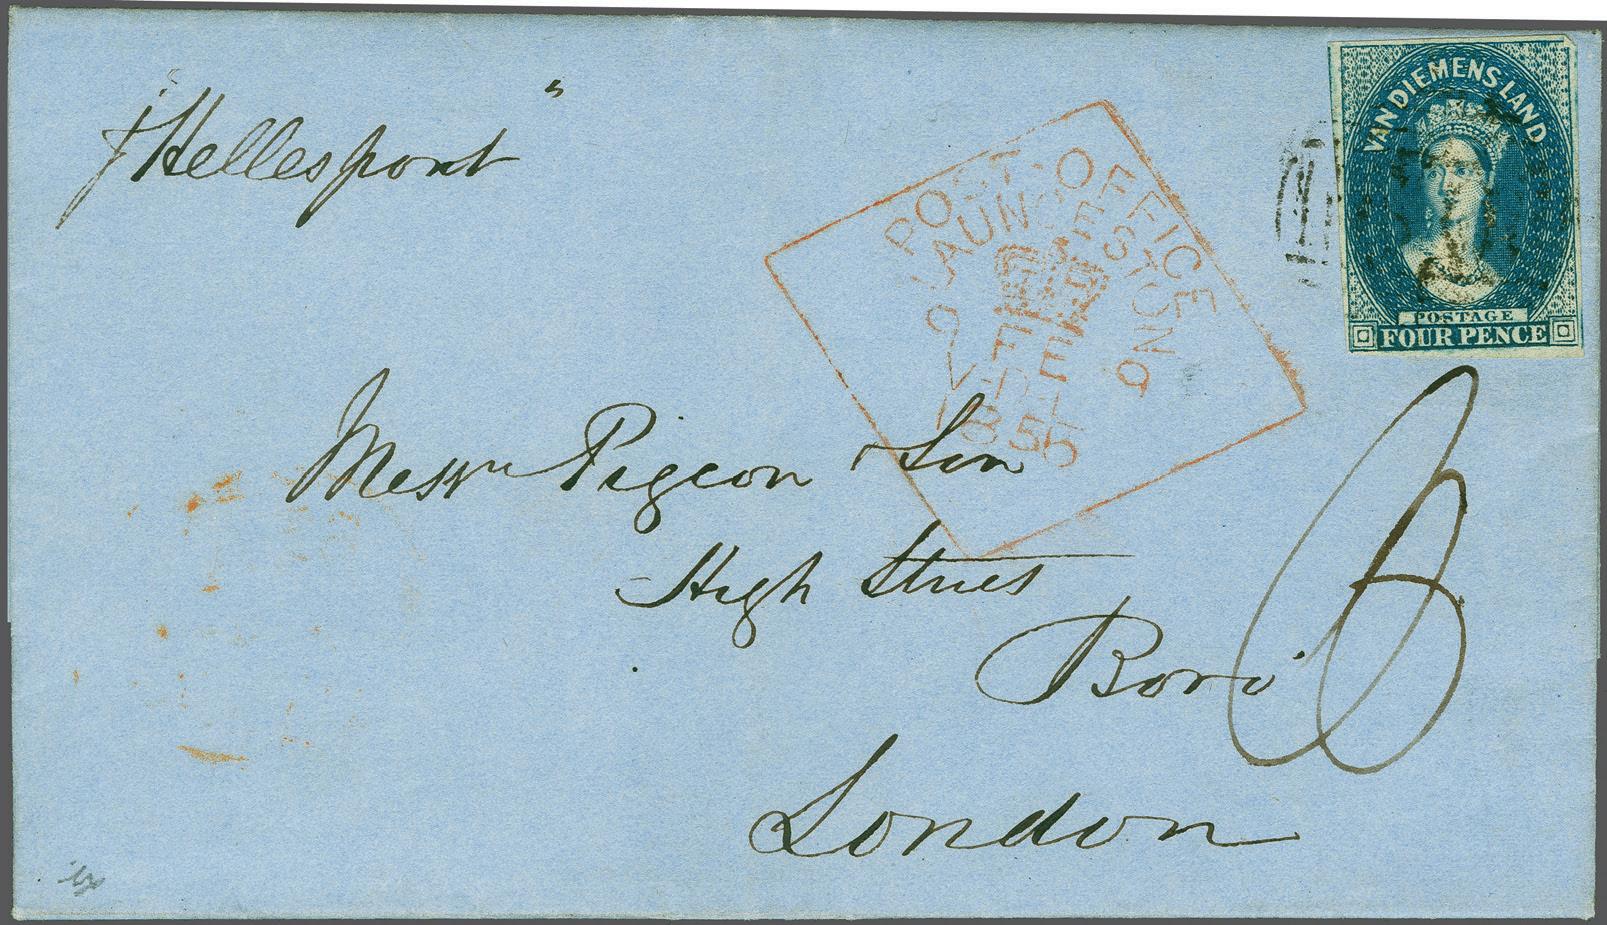 p "Hellespont"
VAN DIEMENS LAND
POSTAGE
FOUR PENCE
POST-OFFICE
LAUNCESTON
Messrs Pigeon & Son
High Street
Boro'
London
6